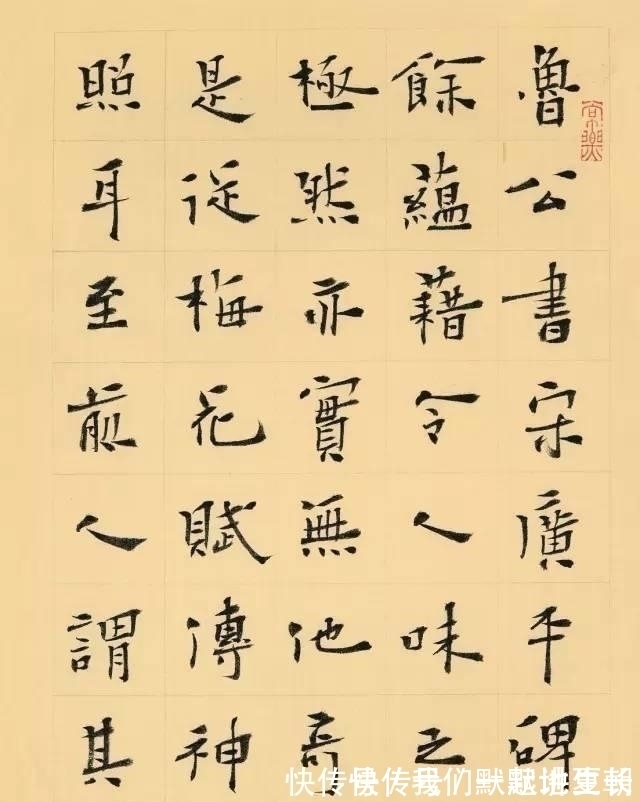 魯公書宋廣平碑
餘蘊藉令人味之
極然亦實無他奇
是從梅花賦傳神
照耳至前人謂其
快传号